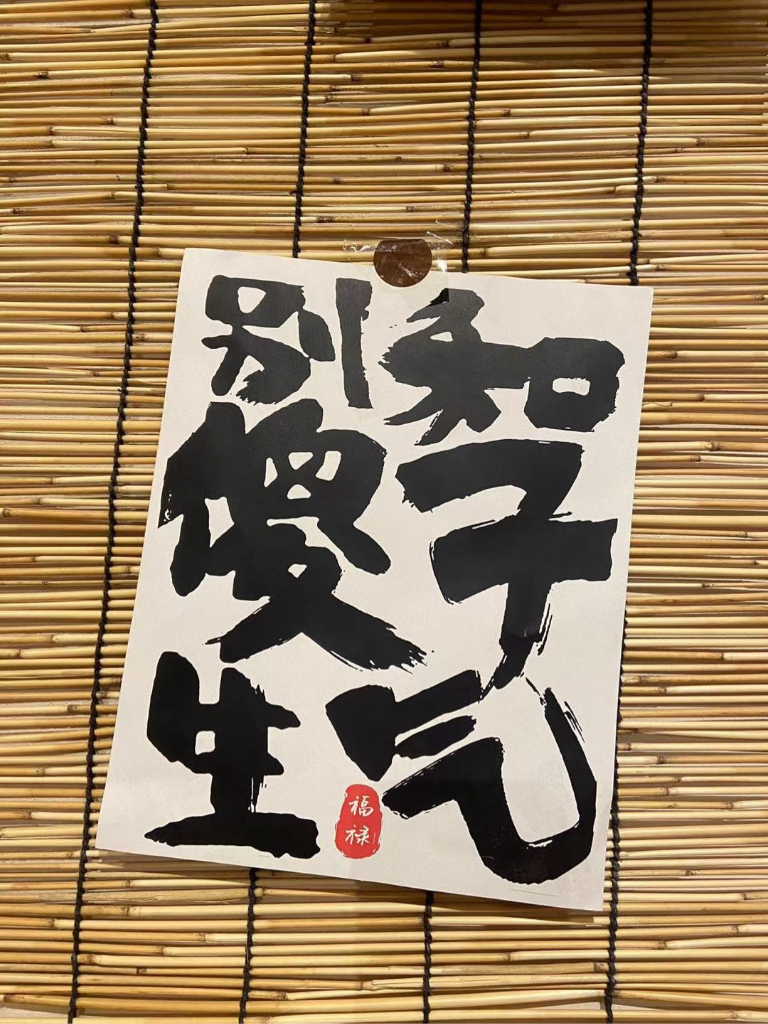 别和
傻子
生气
福禄